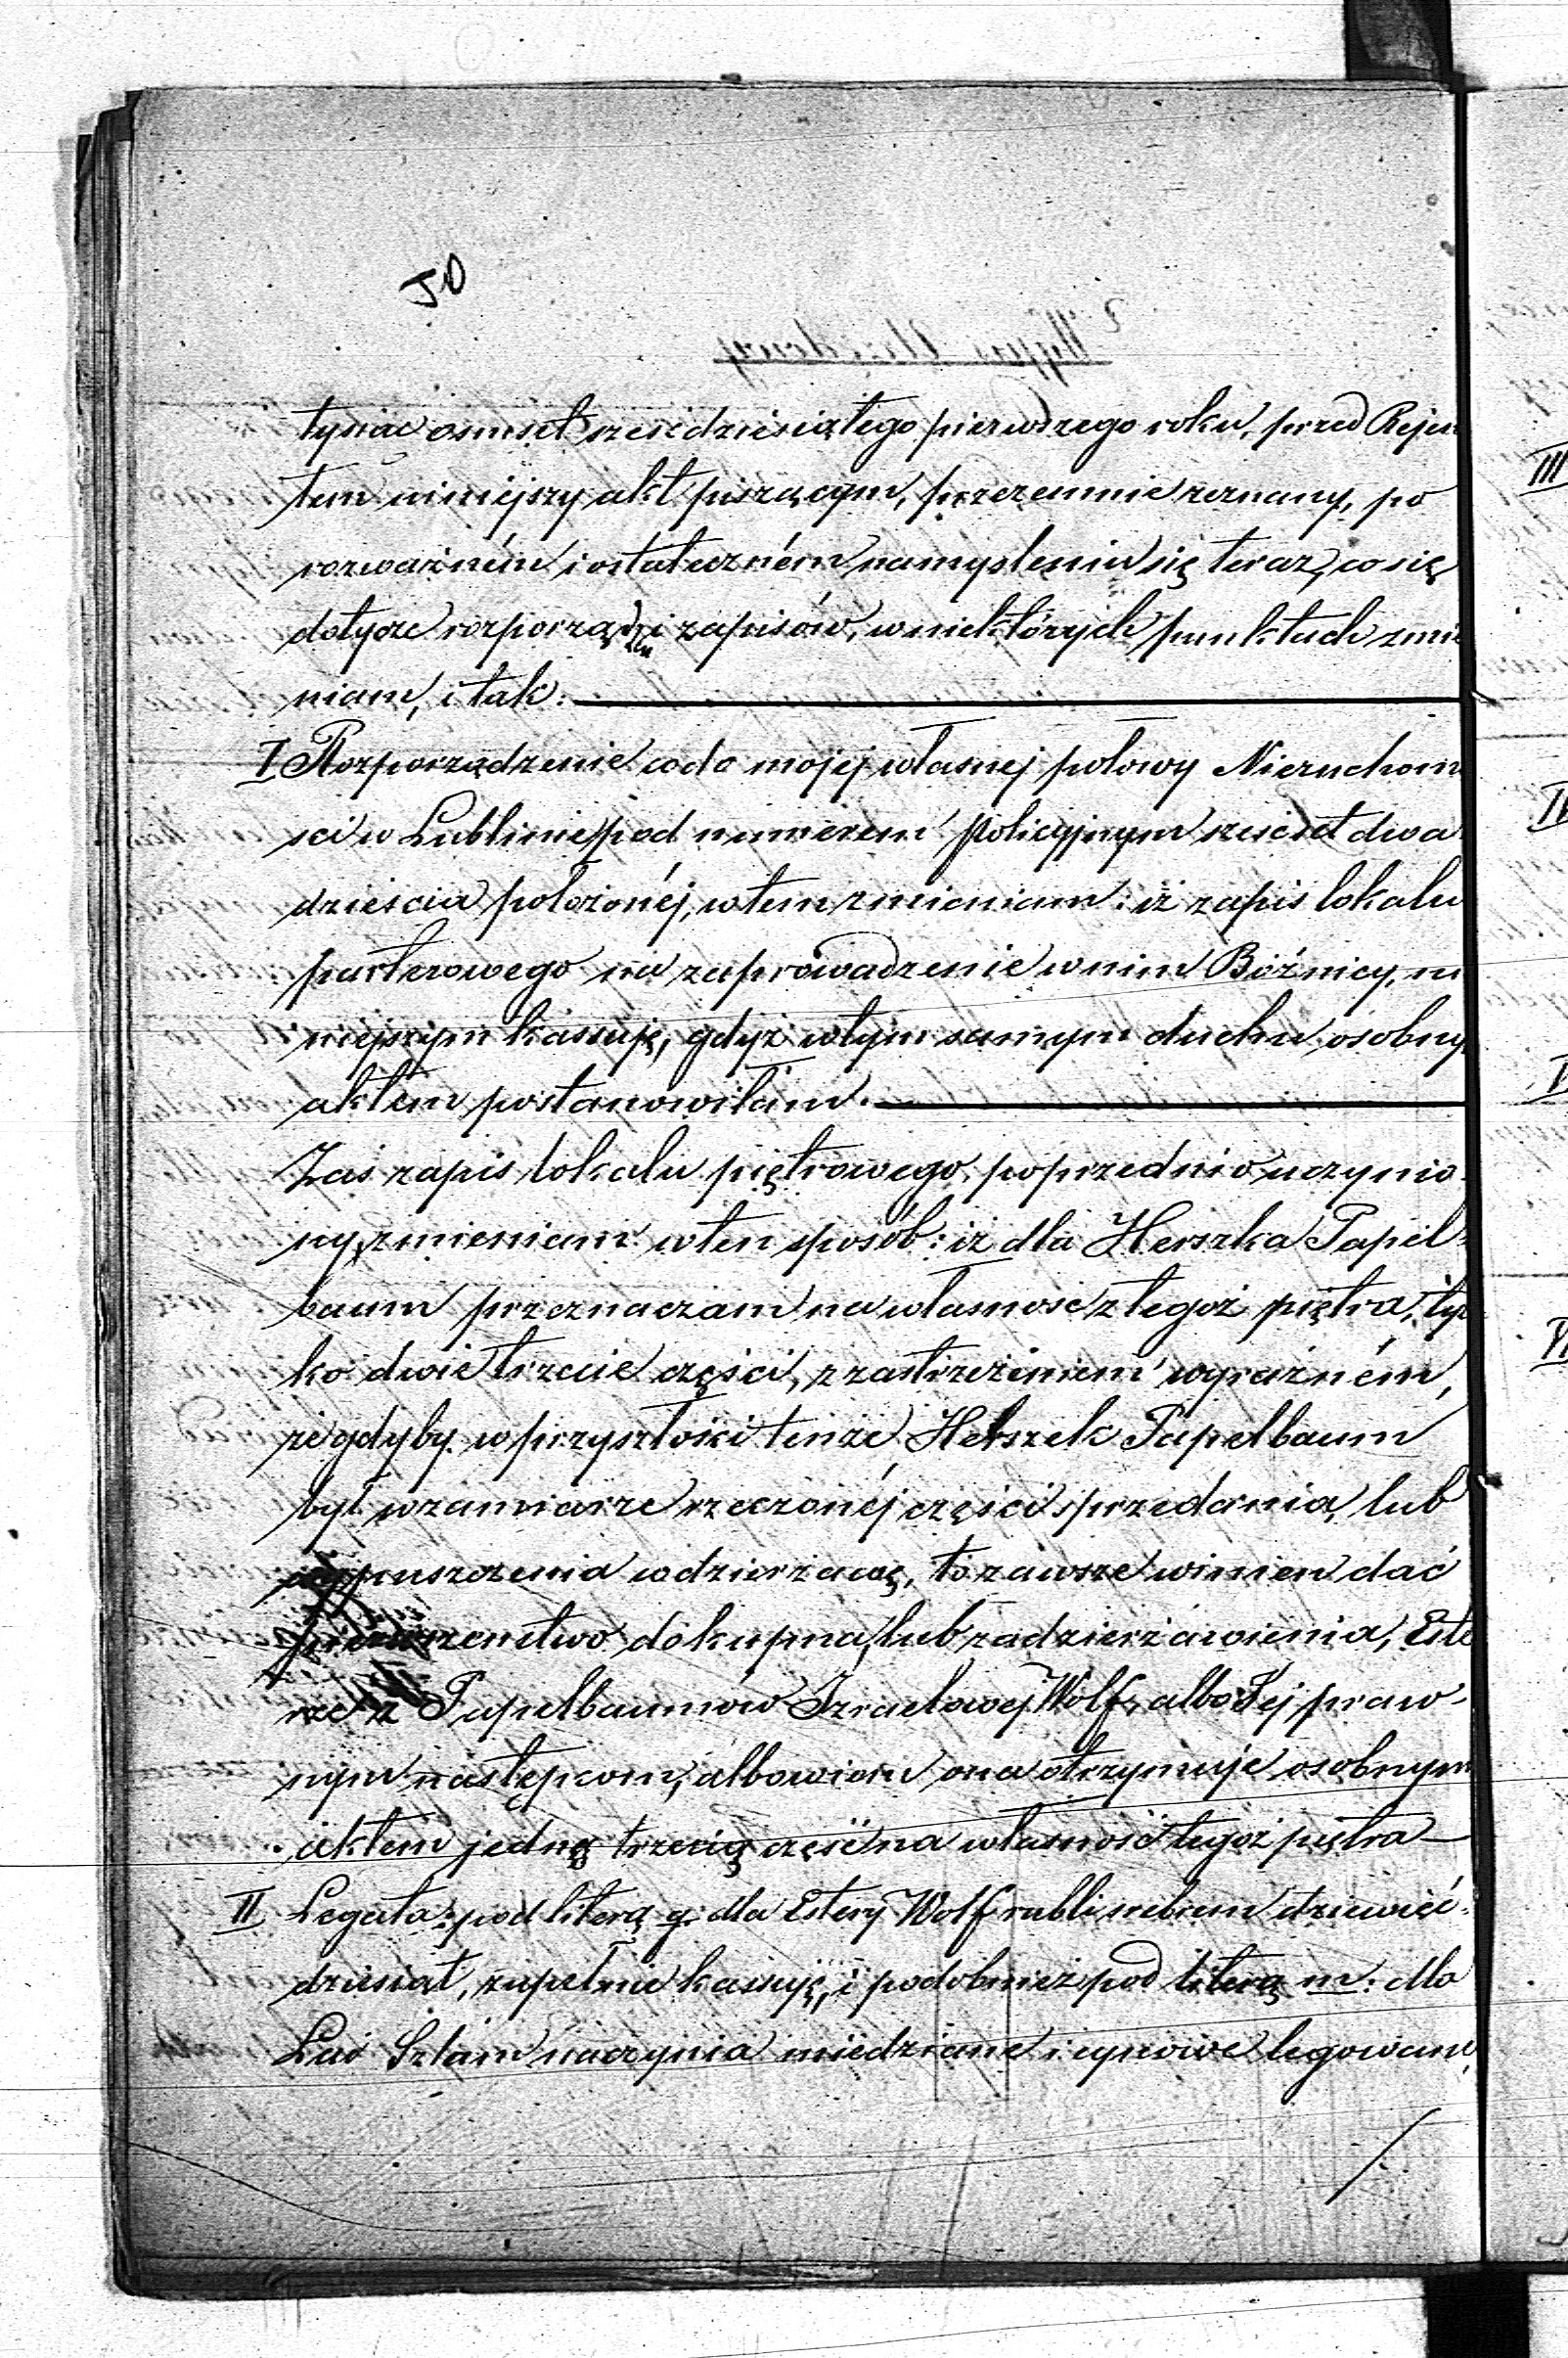 50
tysiąc osmset sześćdziesiątego pierwszego roku, przed Rejen
tem niniejszy akt piszącym, przezemnie zeznany, po
rozważném i ostateczném namyśleniu się teraz, co się
dotycze rozporządzeń i zapisów, w niektórych punktach zmie
niam, i tak:
I Rozporządzenie co do mojej własnej połowy Nieruchomo
ści w Lublinie pod numerem policyjnym sześćset dwa
dzieścia położonéj, w tem zmieniam: iż zapis lokalu
parterowego na zaprowadzenie w nim Bóźnicy, ni
niejszym kassuję, gdyż w tym samym duchu, osobny
aktem postanowiłam.
Zaś zapis lokalu piętrowego, poprzednio uczynio
ny, zmieniam w ten sposób: iż dla Herszka Papel
baum przeznaczam na własność z tegoż piętra, tyl
ko dwie trzecie części, z zastrzeżeniem wyraźném,
że gdyby w przyszłości tenże Herszek Papelbaum
był w zamiarze rzeczonéj części sprzedania, lub
wypuszczenia w dzierżawę, to zawsze winien dać
pierwszeństwo do kupna, lub zadzierżawienia, Este
rze z Papelbaumów Izraelowej Wolf, albo Jej praw-
nym następcom, albowiem ona otrzymuje osobnym
aktem jedną trzecią część na własność tegoż piętra
II Legata: pod literą g: dla Estery Wolf rubli srebrem dziewięć
dziesiąt, zupełnie kassuję, i podobnież pod literą m: dla
Łai Szlam naczynia miedziane i cynowe legowane
III
IV
V
VI